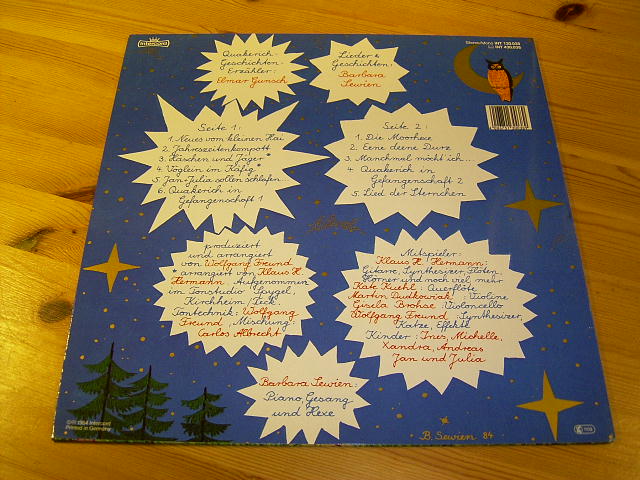 intercord
Stereo/Mono INT 130.035
INT 430.035
Quakerich-
Geschichten-
Erzähler:
Elmar Gunsch
Lieder &
Geschichten:
Barbara
Sewien
Seite 1:
1. Neues vom kleinen Hai
2. Jahreszeitenkompott
3. Häschen und Jäger *
4. Vöglein im Käfig *
5. Jan+Julia sollen schlafen...
6. Quakerich in
Gefangenschaft 1
Seite 2:
1. Die Moorhexe
2. Eene deene Durz
3. Manchmal möcht ich...
4. Quakerich in
Gefangenschaft 2
5. Lied der Sternchen
produziert
und arrangiert
von Wolfgang Freund
* arrangiert von Klaus H.
Hermann, Aufgenommen
im Tonstudio
Kirchheim/Teck.
Tontechnik: Wolfgang
Freund, Mischung:
Carlos Albrecht
Mitspieler:
Klaus H. Hermann:
Gitarre, Synthesizer, Flöten,
Hörner und noch viel mehr
Kate Kuehl: Querflöte
Martin Dudkowiak: Violine
Gisela Brohse: Violoncello
Wolfgang Freund: Synthesizer,
Katze, Effekte
Kinder: Ines, Michelle,
Xandra, Andreas
Jan und Julia
Barbara Sewien:
Piano, Gesang
und Hexe
℗© 1984 Intercord
Printed in Germany
B. Sewien 84